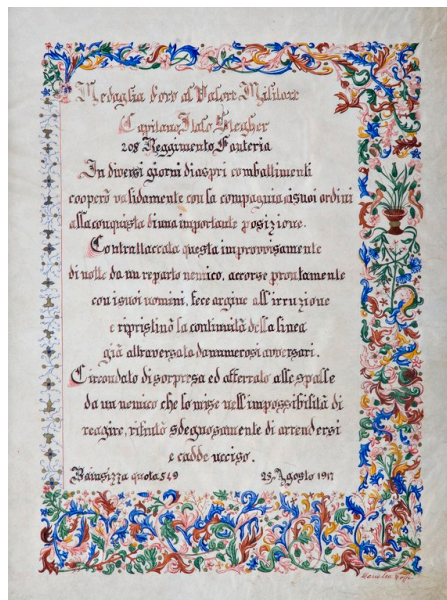 Medaglia d'oro al Valore Militare
Capitano Italo Stegher
208 Reggimento Fanteria
In diversi giorni di aspri combattimenti
cooperò validamente con la compagnia ai suoi ordini
alla conquista di una importante posizione.
Contrattaccata questa improvvisamente
di notte da un reparto nemico, accorse prontamente
con i suoi uomini, fece argine all'irruzione
e ripristinò la continuità della linea
già attraversata da numerosi avversari.
Circondato di sorpresa ed afferrato alle spalle
da un nemico che lo mise nell'impossibilità di
reagire, rifiutò sdegnosamente di arrendersi
e cadde ucciso.
Bainsizza quota 549 25 Agosto 1917